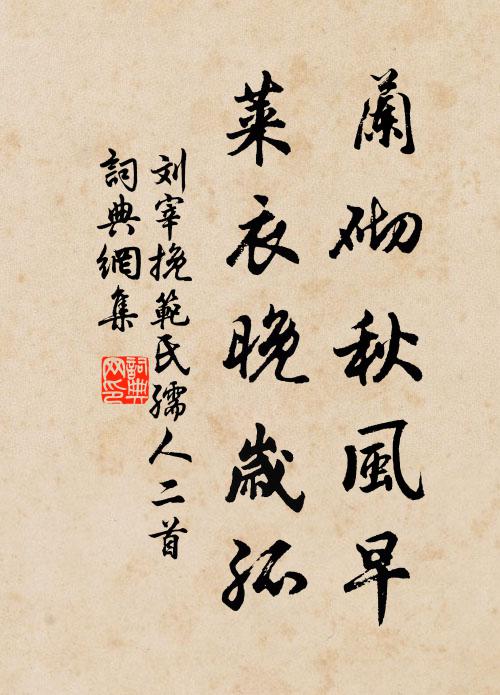 蘭砌秋風早
萊衣晚歲孤
刘宰挽範氏孺人二首
詞典網集
詞典
网印